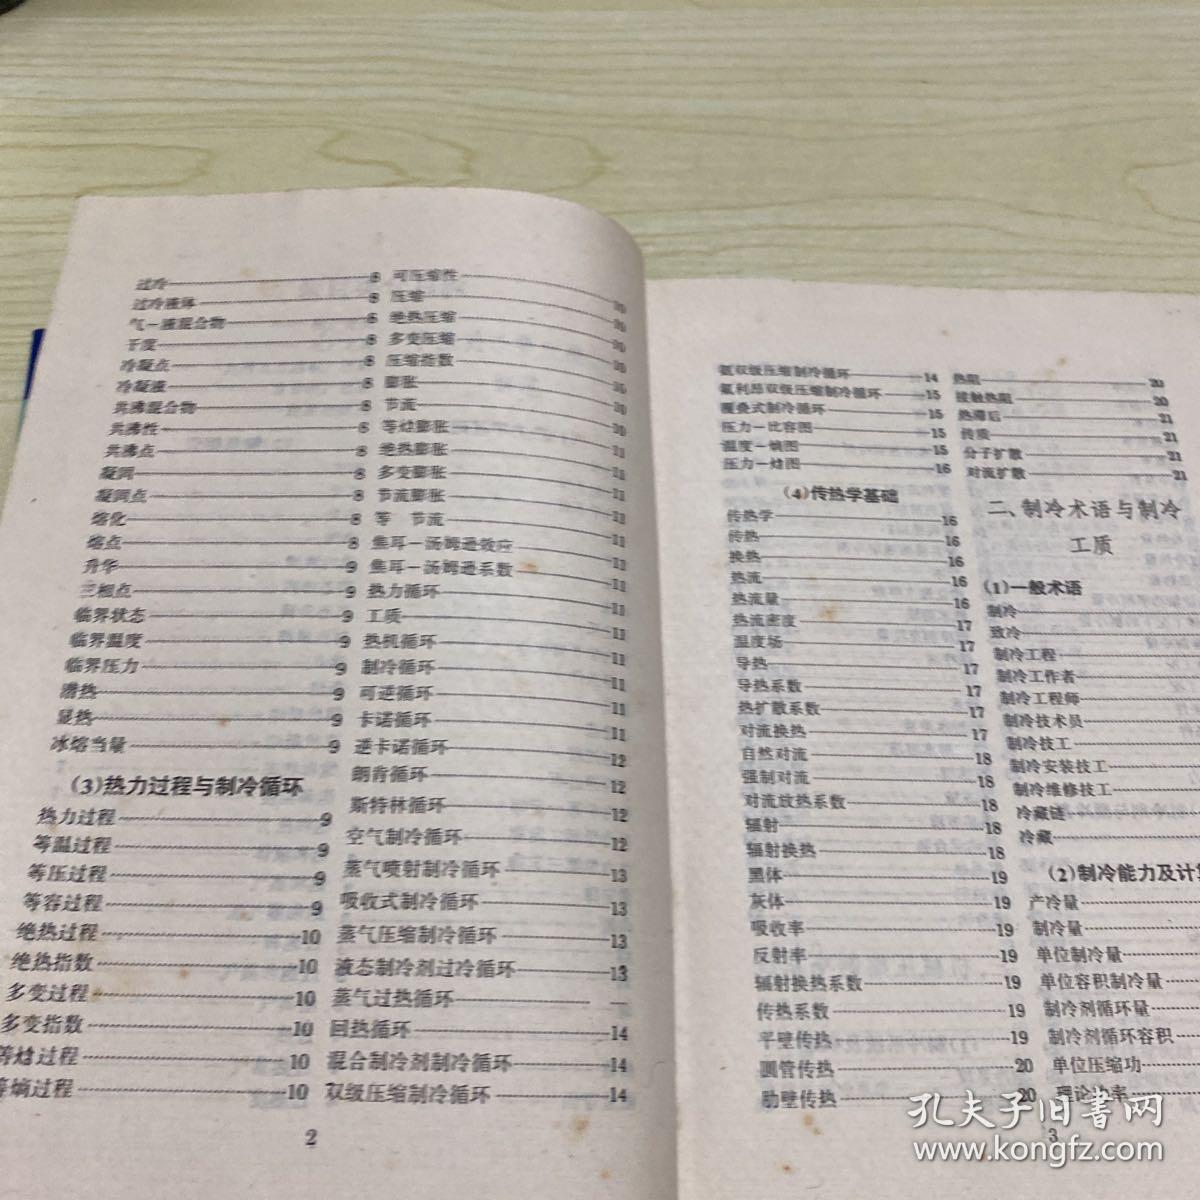 过冷 8
过冷液体 8
气—液混合物 8
干度 8
冷凝点 8
冷凝液 8
共沸混合物 8
共沸性 8
共沸点 8
凝固 8
凝固点 8
熔化 8
熔点 8
升华 9
三相点 9
临界状态 9
临界温度 9
临界压力 9
潜热 9
显热 9
冰熔当量 9
(3)热力过程与制冷循环
热力过程 9
等温过程 9
等压过程 9
等容过程 9
绝热过程 10
绝热指数 10
多变过程 10
多变指数 10
等焓过程 10
等熵过程 10
可压缩性 10
压缩 10
绝热压缩 10
多变压缩 10
压缩指数 10
膨胀 10
节流 10
等焓膨胀 10
绝热膨胀 11
多变膨胀 11
节流膨胀 11
等 节流 11
焦耳—汤姆逊效应 11
焦耳—汤姆逊系数 11
热力循环 11
工质 11
热机循环 11
制冷循环 11
可逆循环 11
卡诺循环 11
逆卡诺循环 12
朗肯循环 12
斯特林循环 12
空气制冷循环 12
蒸气喷射制冷循环 13
吸收式制冷循环 13
蒸气压缩制冷循环 13
液态制冷剂过冷循环 13
蒸气过热循环
回热循环 14
混合制冷剂制冷循环 14
双级压缩制冷循环 14
2
氨双级压缩制冷循环 14
氟利昂双级压缩制冷循环 15
覆叠式制冷循环 15
压力—比容图 15
温度—熵图 15
压力—焓图 16
(4)传热学基础
传热学 16
传热 16
换热 16
热流 16
热流量 16
热流密度 17
温度场 17
导热 17
导热系数 17
热扩散系数 17
对流换热 17
自然对流 18
强制对流 18
对流放热系数 18
辐射 18
辐射换热 18
黑体 19
灰体 19
吸收率 19
反射率 19
辐射换热系数 19
传热系数 19
平壁传热 19
圆管传热 20
肋壁传热 20
热阻 20
接触热阻 20
热滞后 21
传质 21
分子扩散 21
对流扩散 21
二、制冷术语与制冷
工质
(1)一般术语
制冷
致冷
制冷工程
制冷工作者
制冷工程师
制冷技术员
制冷技工
制冷安装技工
制冷维修技工
冷藏链
冷藏
(2)制冷能力及计算
产冷量
制冷量
单位制冷量
单位容积制冷量
制冷剂循环量
制冷剂循环容积
单位压缩功
理论功率
3
孔夫子旧书网
www.kongfz.com